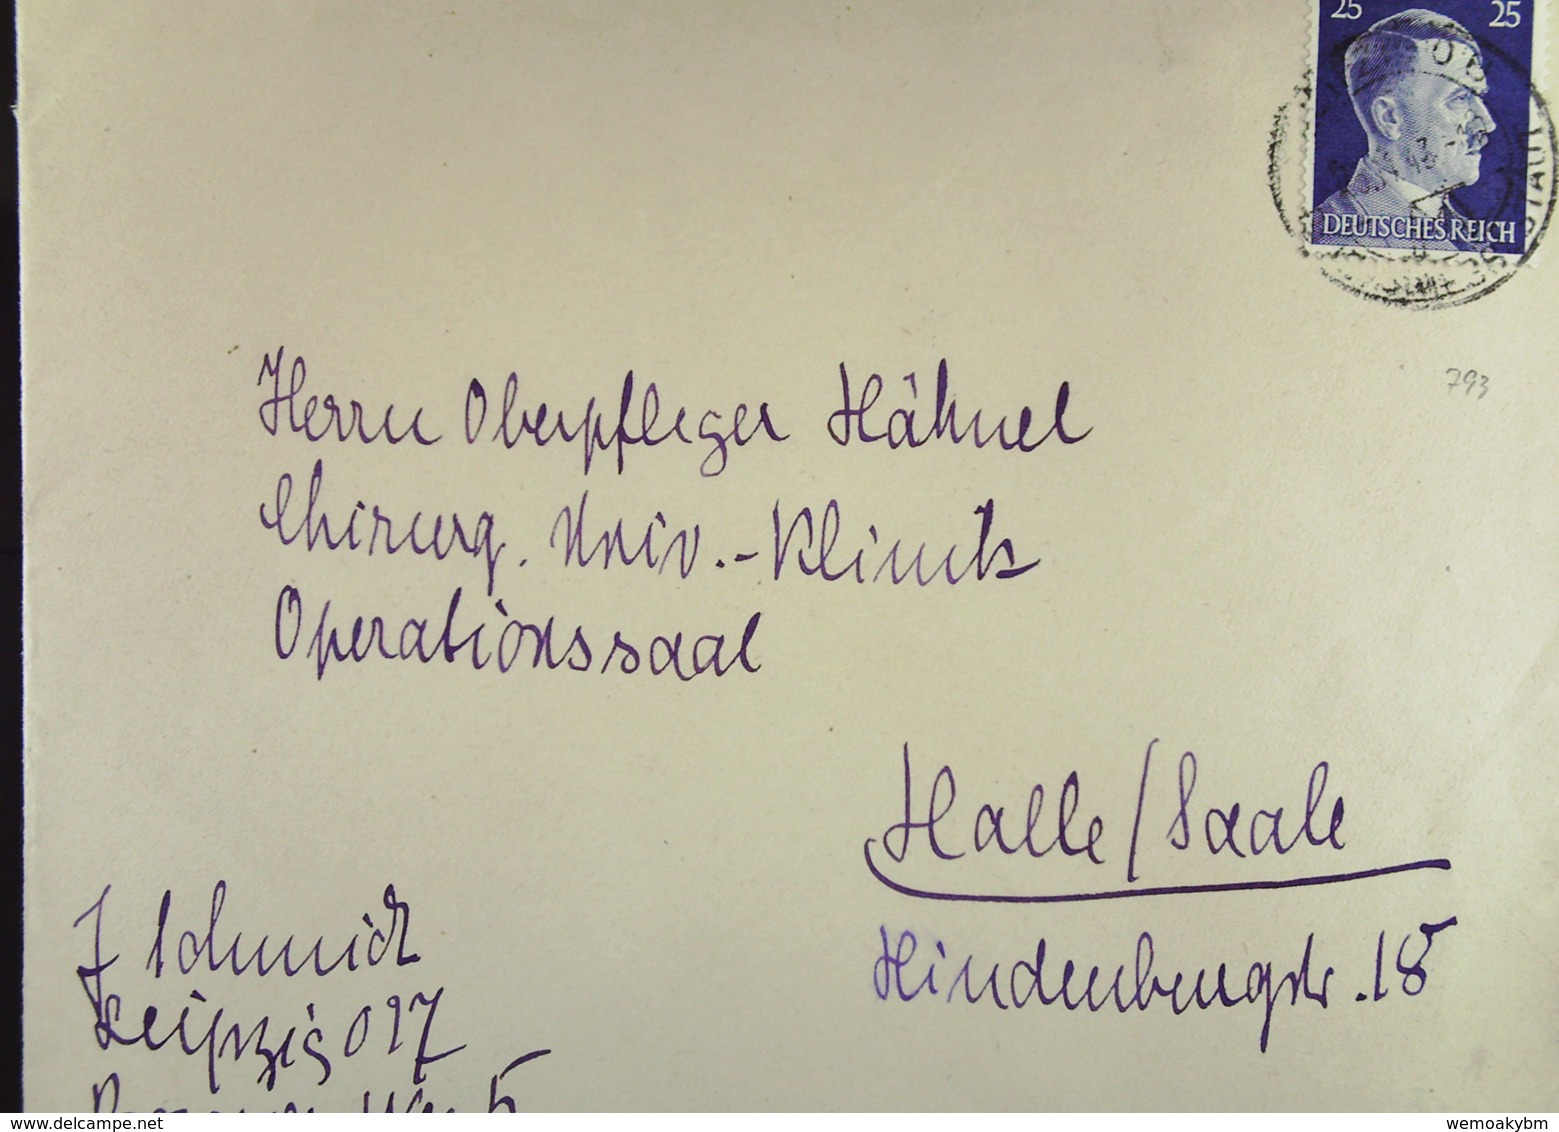 25 25
DEUTSCHES REICH
793
Herrn Oberpfleger Hähnel
Chirurg. Univ.-Klinik
Operationssaal
Halle/Saale
Hindenburgstr. 18
J Schmidt
Leipzig O 27
wemoakybm